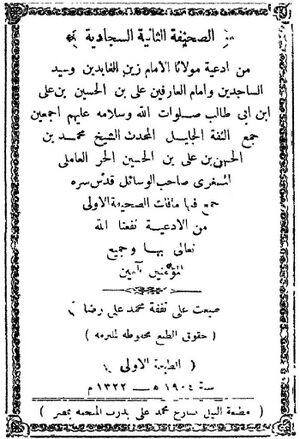 الصحيفة الثانية السجادية
من ادعية مولانا الامام زين العابدين وسيد
الساجدين وامام العارفين على بن الحسين بن على
ابن ابى طالب صلوات الله وسلامه عليهم اجمعين
جمع الثقة الجليل المحدث الشيخ محمد بن
الحسن بن على بن الحسين الحر العاملى
المشغرى صاحب الوسائل قدس سره
جمع فيها مافات الصحيفة الاولى
من الادعية نفعنا الله
تعالى بها وجميع
المؤمنين آمين
طبعت على نفقة محمد على رضا
( حقوق الطبع محفوظه لملتزمه )
( الطبعة الاولى )
سنة ١٩٠٤ ه ١٣٢٢ م
( مطبعة النيل بشارع محمد على بدرب المنجمه بمصر )